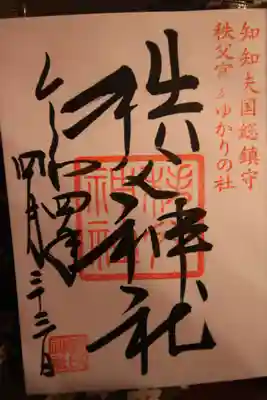 知知夫国総鎮守
秩父宮ゆかりの社
秩父神社
令和四年
四月二十三日
秩父神社